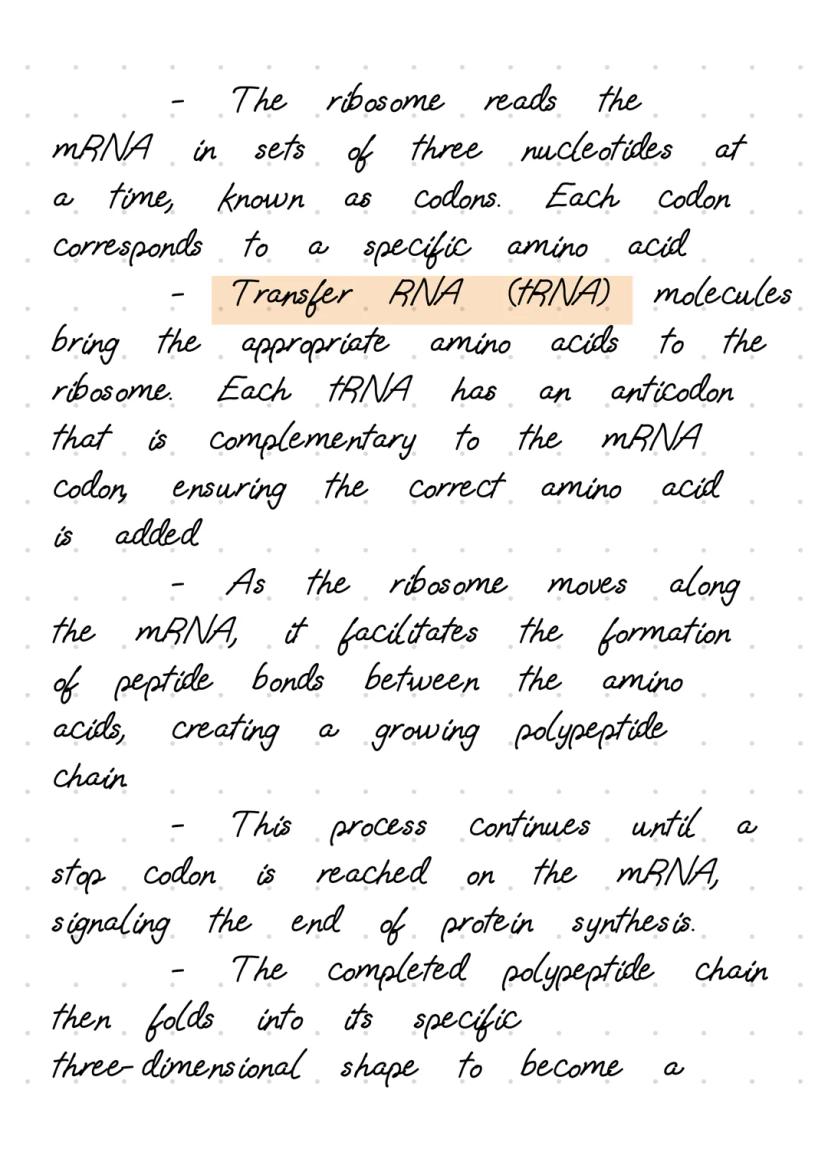 - The ribosome reads the
mRNA in sets of three nucleotides at
a time, known as codons. Each codon
corresponds to a specific amino acid
- Transfer RNA (tRNA) molecules
bring the appropriate amino acids to the
ribosome. Each tRNA has an anticodon
that is complementary to the mRNA
codon, ensuring the correct amino acid
is added
- As the ribosome moves along
the mRNA, it facilitates the formation
of peptide bonds between the amino
acids, creating a growing polypeptide
chain
- This process continues until a
stop codon is reached on the mRNA,
signaling the end of protein synthesis.
- The completed polypeptide chain
then folds into its specific
three-dimensional shape to become a